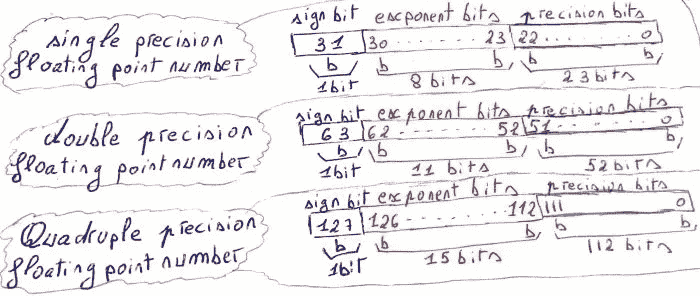 single precision
floating point number
sign bit exponent bits precision bits
31 30 ........ 23 22 ....... 0
b b b, b b,
1bit 8 bits 23 bits
double precision
floating point number
sign bit exponent bits precision bits
63 62 ........ 52 51 ....... 0
b b b, b b,
1bit 11 bits 52 bits
Quadruple precision
floating point number
sign bit exponent bits precision bits
127 126 ........ 112 111 0
b b b, b b,
1bit 15 bits 112 bits